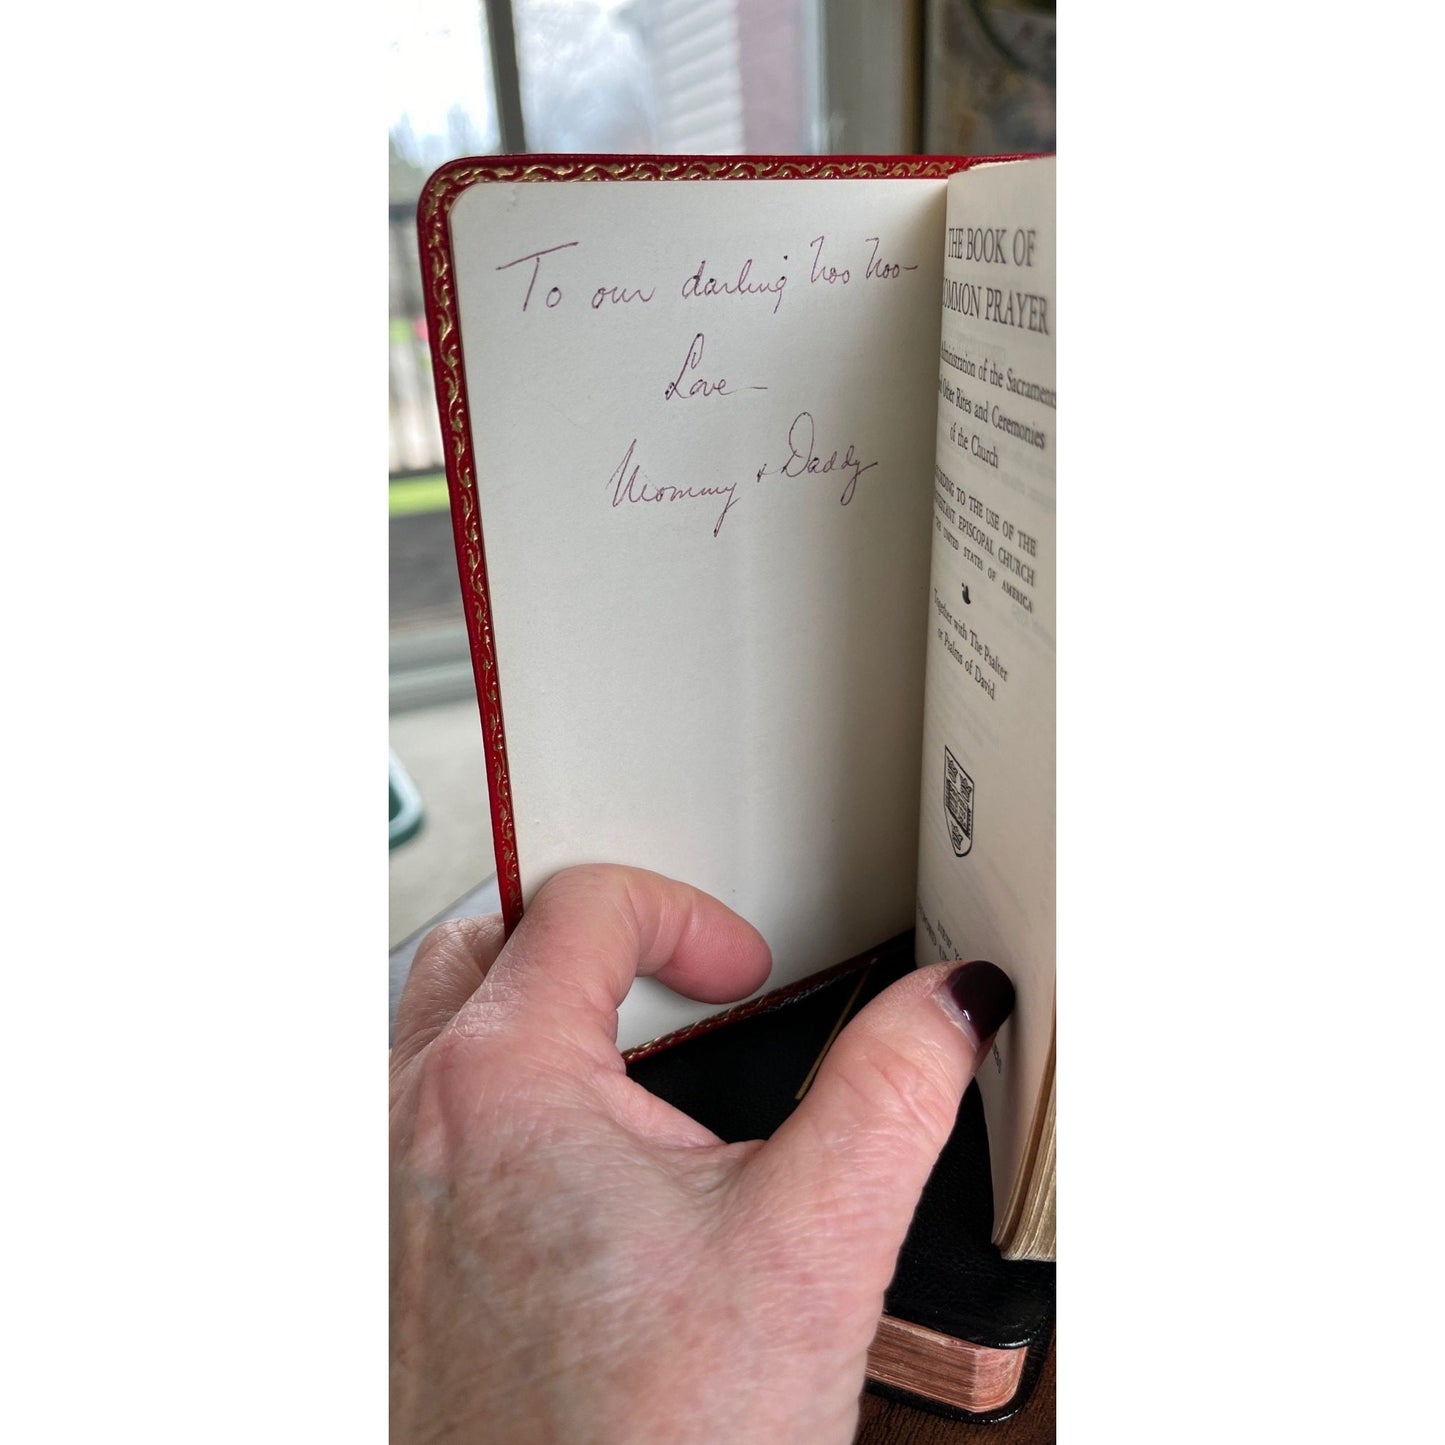 To our darling Noo Noo—
Love—
Mommy + Daddy
THE BOOK OF
COMMON PRAYER
Administration of the Sacraments
Other Rites and Ceremonies
of the Church
TO THE USE OF THE
EPISCOPAL CHURCH
UNITED STATES OF AMERICA
Together with The Psalter
or Psalms of David
NEW